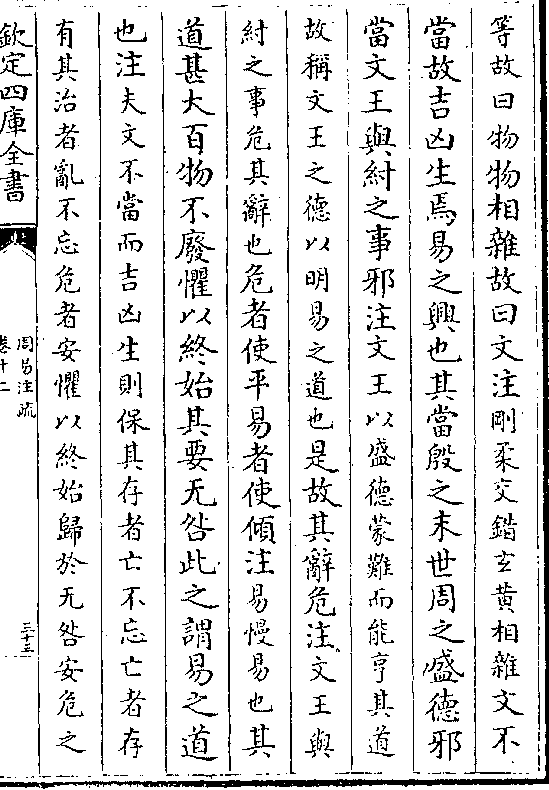 等故曰物物相雜故曰文注剛柔交錯玄黃相雜文不
當故吉凶生焉易之興也其當殷之末世周之盛德邪
當文王與紂之事邪注文王以盛德蒙難而能亨其道
故稱文王之德以明易之道也是故其辭危注文王與
紂之事危其辭也危者使平易者使傾注易慢易也其
道甚大百物不廢懼以終始其要无咎此之謂易之道
也注夫文不當而吉凶生則保其存者亡不忘亡者存
有其治者亂不忘危者安懼以終始歸於无咎安危之
欽定四庫全書
周易注疏
卷十二
三十三